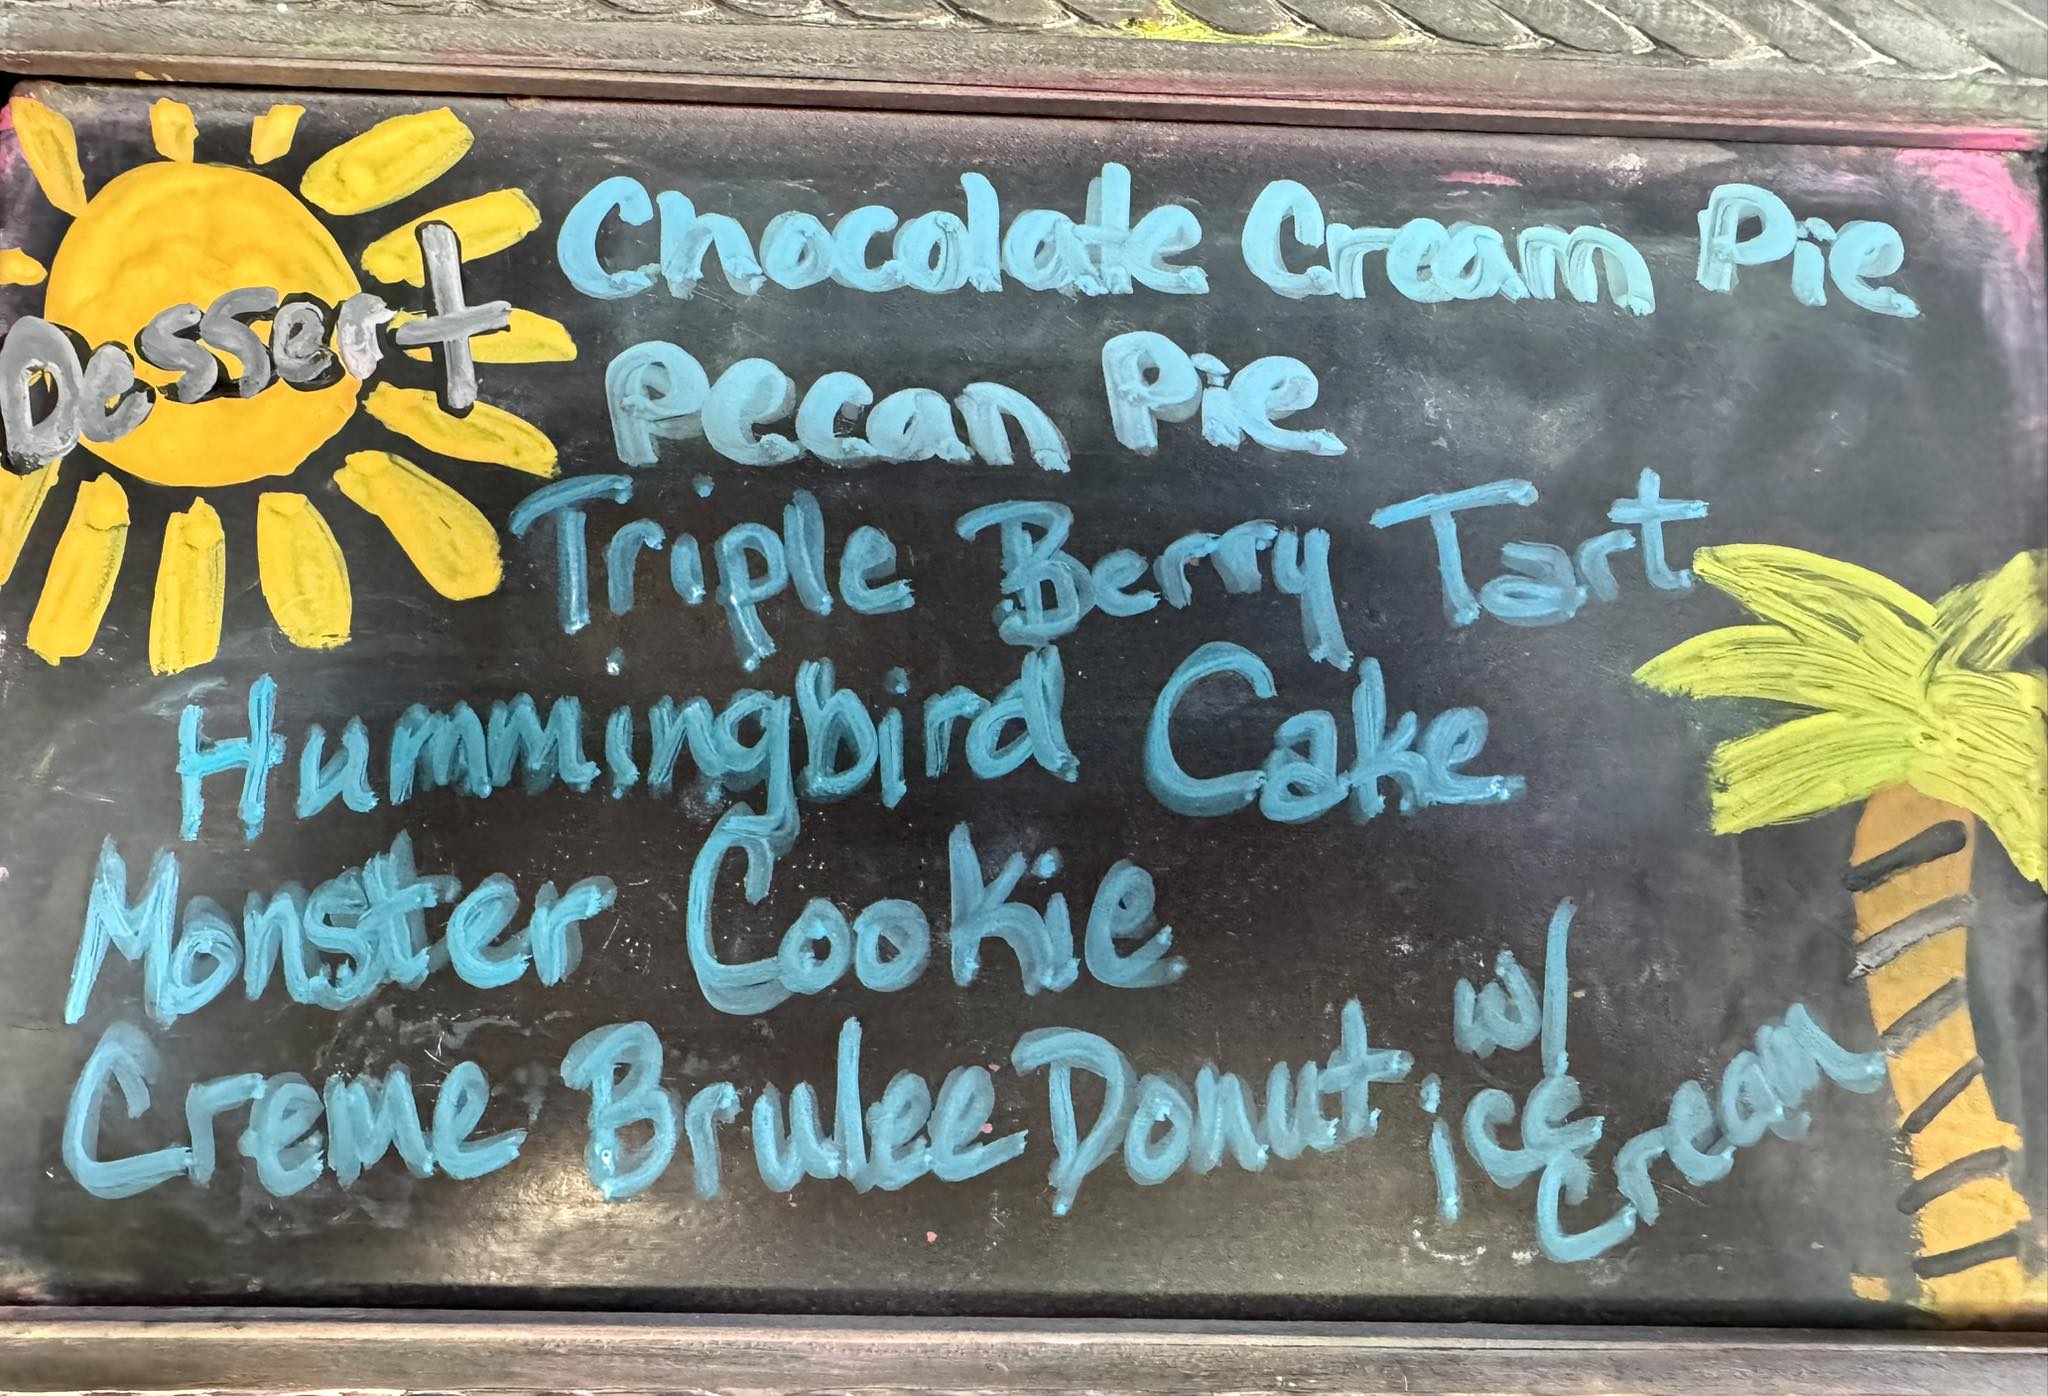 Dessert
Chocolate Cream Pie
Pecan Pie
Triple Berry Tart
Hummingbird Cake
Monster Cookie
Creme Brulee Donut w/
ice
Cream